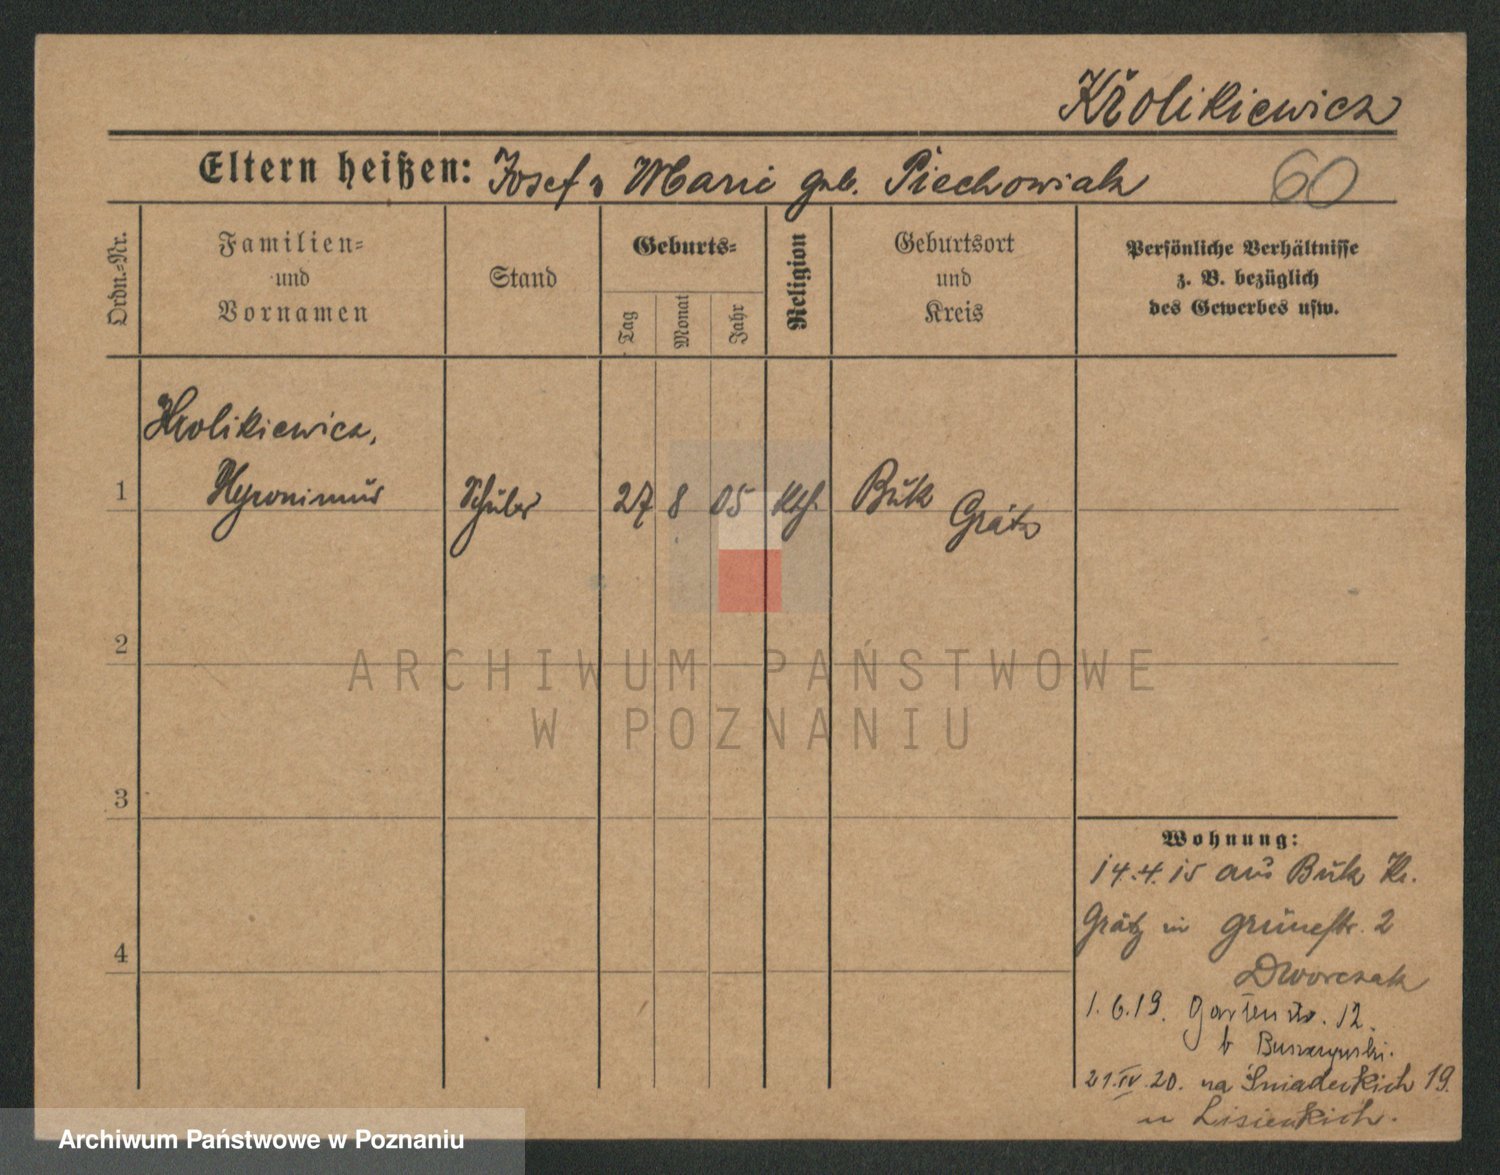 Křolikiewicz
Eltern heißen: Josef u Marie geb. Piechowiak
60
Ordn.-Nr.
Familien-
und
Vornamen
Stand
Geburts-
Tag
Monat
Jahr
Religion
Geburtsort
und
Kreis
Persönliche Verhältnisse
z. B. bezüglich
des Gewerbes usw.
Krolikiewicz,
1 Hyronimus Schüler 27 8 05 kth. Buk
Grätz
2
ARCHIWUM PAŃSTWOWE
W POZNANIU
3
Wohnung:
14.4.15 aus Buk Kr.
Grätz in Grünestr. 2
4
Dworczak
1.6.19. Gartenstr. 12.
b Buszczynski.
21.IV.20. na Śniadeckich 19.
u Lisieckich.
Archiwum Państwowe w Poznaniu